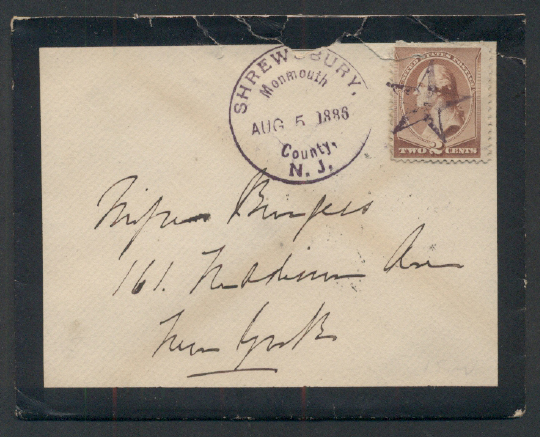 SHREWSBURY,
Monmouth
AUG 5 1886
County,
N. J.
UNITED STATES POSTAGE
TWO 2 CENTS
Burgess
161. Madison Ave
New York